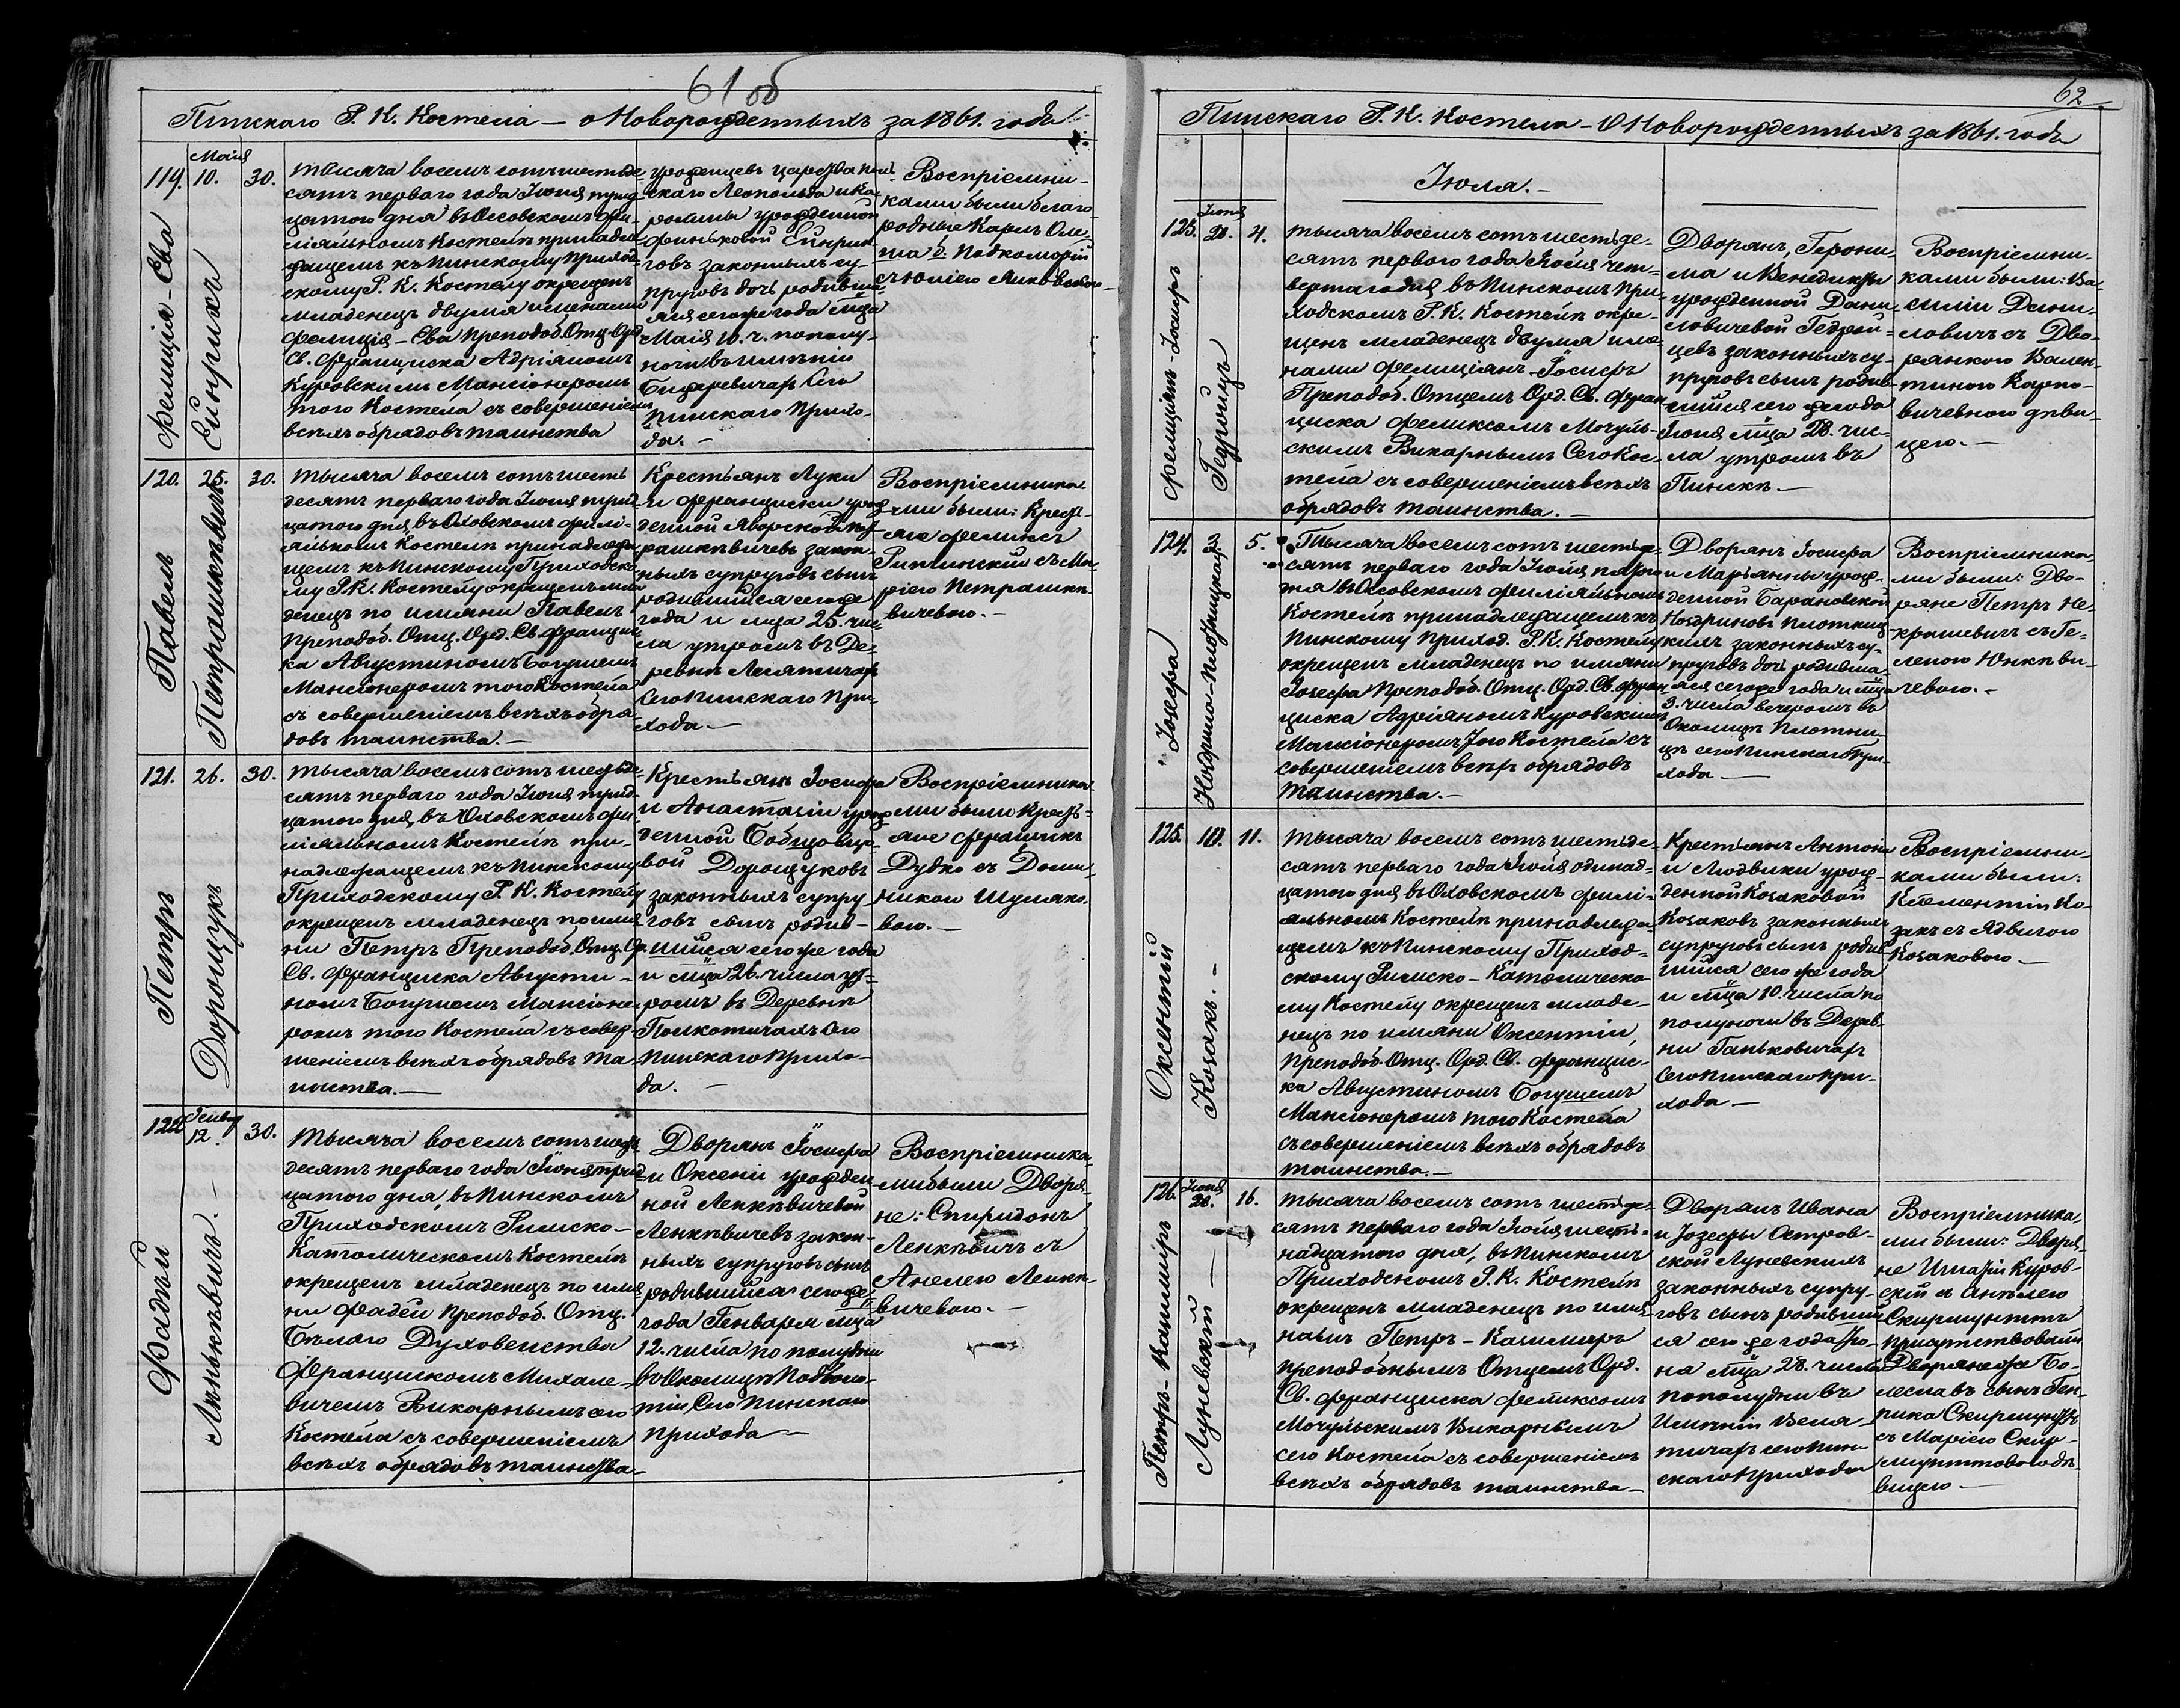 61 об
Пинскаго Р. К. Костела — о Новорожденныхъ за 1861. годъ
119.
Маія
10.
30.
Фелиція-Ева
Ейнрихъ
тысяча восемь сотъ шестьде-
сятъ перваго года Іюня трид-
цатого дня въ Оховскомъ фи-
ліяльномъ Костелѣ принадле-
жащемъ къ Пинскому приход-
скому Р. К. Костелу окрещенъ
младенецъ двумя именами
Фелиція — Ева Преподоб. Отц. Орд.
Св. Франциска Адріяномъ
Куровскимъ Мансіонеромъ
того Костела съ совершеніемъ
всѣхъ обрядовъ таинства
урожденцевъ царства Поль-
скаго Леопольда и Ка-
ролины урожденной
Ейнри-
говъ законныхъ су-
пруговъ дочь родивша-
яся сегоже года мца
Маія 10. ч. по полу-
ночи въ имѣніи
сего
Пинскаго прихо-
да. —
Воспріемни-
ками были благо-
родные Карлъ
съ Юліею
120.
25.
30.
Павелъ
Петрашкѣвичъ
тысяча восемь сотъ шесть
десятъ перваго года Іюня трид-
цатого дня въ Оховскомъ фили-
яльномъ Костелѣ принадлежа-
щемъ къ Пинскому Приходско-
му Р.К. Костелу окрещенъ мла-
денецъ по имяни Павелъ
Преподоб. Отц. Орд. Св. Францис-
ка Августиномъ Богушемъ
Мансіонеромъ того Костела
съ совершеніемъ всѣхъ обря-
довъ таинства. —
Крестьянъ Луки
и Францишки урож-
денной Яворской Пет-
рашкѣвичевъ закон-
ныхъ супруговъ сынъ
родившійся сегоже
года и мца 25. чис-
ла утромъ въ Де-
ревнѣ Лясятичахъ
Сего Пинскаго При-
хода. —
Воспріемника-
ми были: Кресть-
яне Феликсъ
съ Ма-
ріею Петрашкѣ-
вичевою. —
121.
26.
30.
Петръ
Дорощукъ
тысяча восемь сотъ шестьде-
сятъ перваго года Іюня трид-
цатого дня въ Оховскомъ фи-
ліяльномъ Костелѣ при-
надлежащемъ къ Пинскому
Приходскому Р. К. Костелу
окрещенъ младенецъ по имя-
ни Петръ Преподоб. Отц. Ор.
Св. Франциска Августи-
номъ Богушемъ Мансіоне-
ромъ того Костела съ совер-
шеніемъ всѣхъ обрядовъ та-
инства. —
Крестьянъ Іосифа
и Анастасіи урож-
денной
вой Дорощуковъ
законныхъ супру-
говъ сынъ родив-
шійся сегоже года
и мца 26. числа ут-
ромъ въ Деревнѣ
Поикотичахъ Сего
Пинскаго Прихо-
да. —
Воспріемника-
ми были Кресть-
яне Францискъ
Дудко съ Доми-
никою Шуляко-
вою. —
122
Генваря
12.
30.
Фадѣй
Лѣнькѣвичъ. —
тысяча восемь сотъ шесть
десятъ перваго года Іюня трид-
цатого дня, въ Пинскомъ
Приходскомъ Римско-
Католическомъ Костелѣ
окрещенъ младенецъ по имя-
ни Фадей Преподоб. Отц.
Бѣлаго Духовенства
Францискомъ Михале-
вичемъ Викарнымъ сего
Костела съ совершеніемъ
всѣхъ обрядовъ таинства
Дворянъ Іосифа
и Оксеніи урожден-
ной Ленкѣвичевой
Ленкѣвичевъ закон-
ныхъ супруговъ сынъ
родившійся сегоже
года Генваря мца
12. числа по полудни
въ Околицѣ
Сего Пинскаго
прихода —
Воспріемника-
ми были Дворя-
не: Спиридонъ
Ленкѣвичъ съ
Анелею Ленкѣ-
вичевою. —
62
Пинскаго Р. К. Костела — О Новорожденныхъ за 1861. годъ
Іюля. —
123.
Іюня
28.
4.
Фелиціянъ-Іосифъ
Гедроицъ
тысяча восемь сотъ шестьде-
сятъ перваго года Іюля чет-
вертаго дня, въ Пинскомъ При-
ходскомъ Р. К. Костелѣ окре-
щенъ младенецъ двумя име-
нами Фелиціянъ-Іосифъ
Преподоб. Отцемъ Орд. Св. Фран-
циска Феликсомъ Мочуль-
скимъ Викарнымъ Сего Кос-
тела съ совершеніемъ всѣхъ
обрядовъ таинства. —
Дворянъ, Герони-
ма и Бенедикты
урожденной Дани-
ловичевой Гедрой-
цевъ законныхъ су-
пруговъ сынъ родив-
шійся сего жегода
Іюня мца 28. чис-
ла утромъ въ
Пинскѣ. —
Воспріемни-
ками были: Ва-
силій Дани-
ловичъ съ Дво-
рянкою Вален-
тиною Карпо-
вичевною дѣви-
цею. —
124.
3
5.
Іозефа
Ноздринъ-Плотницкая
Тысяча восемь сотъ шестьде-
сятъ перваго года Іюля пятого
дня въ Оховскомъ филіяльномъ
Костелѣ принадлежащемъ къ
Пинскому приход. Р.К. Костелу
окрещенъ младенецъ по имяни
Іозефа Преподоб. Отц. Орд. Св. Фран-
циска Адріяномъ Куровскимъ
Мансіонеромъ того Костела съ
совершеніемъ всѣхъ обрядовъ
таинства. —
Дворянъ Іосифа
и Марьянны урож-
денной Барановской
Ноздриновъ Плотниц-
кихъ законныхъ су-
пруговъ дочь родивша-
яся сегоже года и мца
3. числа вечеромъ въ
Околицѣ Плотни-
цѣ сего Пинскаго При-
хода —
Воспріемника-
ми были: Дво-
ряне Петръ Не-
крашевичъ съ Ге-
леною Юнкѣви-
чевою. —
125.
10.
11.
Оксентій
Козакъ. —
тысяча восемь сотъ шестьде-
сятъ перваго года Іюля одинад-
цатого дня въ Оховскомъ фили-
яльномъ Костелѣ принадлежа-
щемъ къ Пинскому Приход-
скому Римско-Католическо-
му Костелу окрещенъ младе-
нецъ по имяни Оксентій,
Преподоб. Отц. Орд. Св. Францис-
ка Августиномъ Богушемъ
Мансіонеромъ того Костела
съ совершеніемъ всѣхъ обрядовъ
таинства. —
Крестьянъ Антона
и Людвики урож-
денной Козаковой
Козаковъ законныхъ
супруговъ сынъ родив-
шійся сего же года
и мца 10. числа по
полуночи въ Дерев-
ни Ганьковичахъ
Сего Пинскаго При-
хода —
Воспріемни-
ками были:
Клементій Ко-
закъ съ Ядвигою
Козаковою. —
126.
Іюня
28.
16.
Петръ-Казиміръ
Луневскій —
тысяча восемь сотъ шестьде-
сятъ перваго года Іюля шест-
надцатого дня, въ Пинскомъ
Приходскомъ Р. К. Костелѣ
окрещенъ младенецъ по име-
намъ Петръ-Казимиръ
преподобнымъ Отцемъ Орд.
Св. Франциска Феликсомъ
Мочульскимъ Викарнымъ
сего Костела съ совершеніемъ
всѣхъ обрядовъ таинства —
Дворянъ Ивана
и Іозефы Остров-
ской Луневскихъ
законныхъ супру-
говъ сынъ родивший-
ся сего же года Ію-
ня мца 28. числа
по полудни въ
Имѣніи Веля-
тичахъ сего Пин-
скаго Прихода
Воспріемника-
ми были: Дворя-
не Игнатій Куров-
скій съ Анѣлею
Скирмунттъ
присутствовали
Дворяне же Бо-
леславъ сынъ Ген-
рика Скирмунтъ
съ Маріею Скир-
мунттовою дѣ-
вицею. —